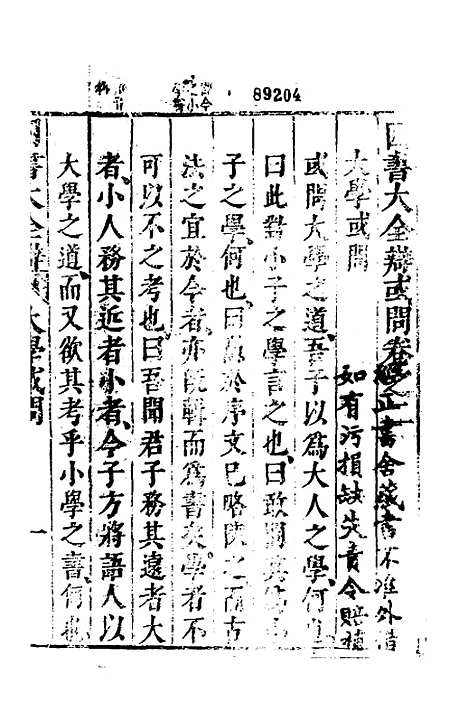 89204
四書大全辯或問卷之一
養正書舍藏書不准外借
如有污損缺失責令賠補
大學或問
或問大學之道吾子以爲大人之學何也
曰此對小子之學言之也曰敢問其爲小
子之學何也曰愚於序文已略陳之而古
法之宜於今者亦旣輯而爲書矣學者不
可以不之考也曰吾聞君子務其遠者大
者小人務其近者小者今子方將語人以
大學之道而又欲其考乎小學之書何也
四書大全辯 大學或問 一